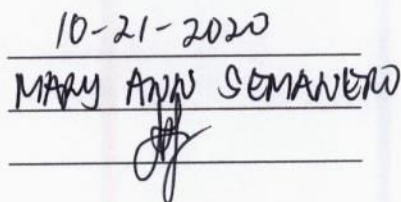 10-21-2020
MARY ANN SEMANERO